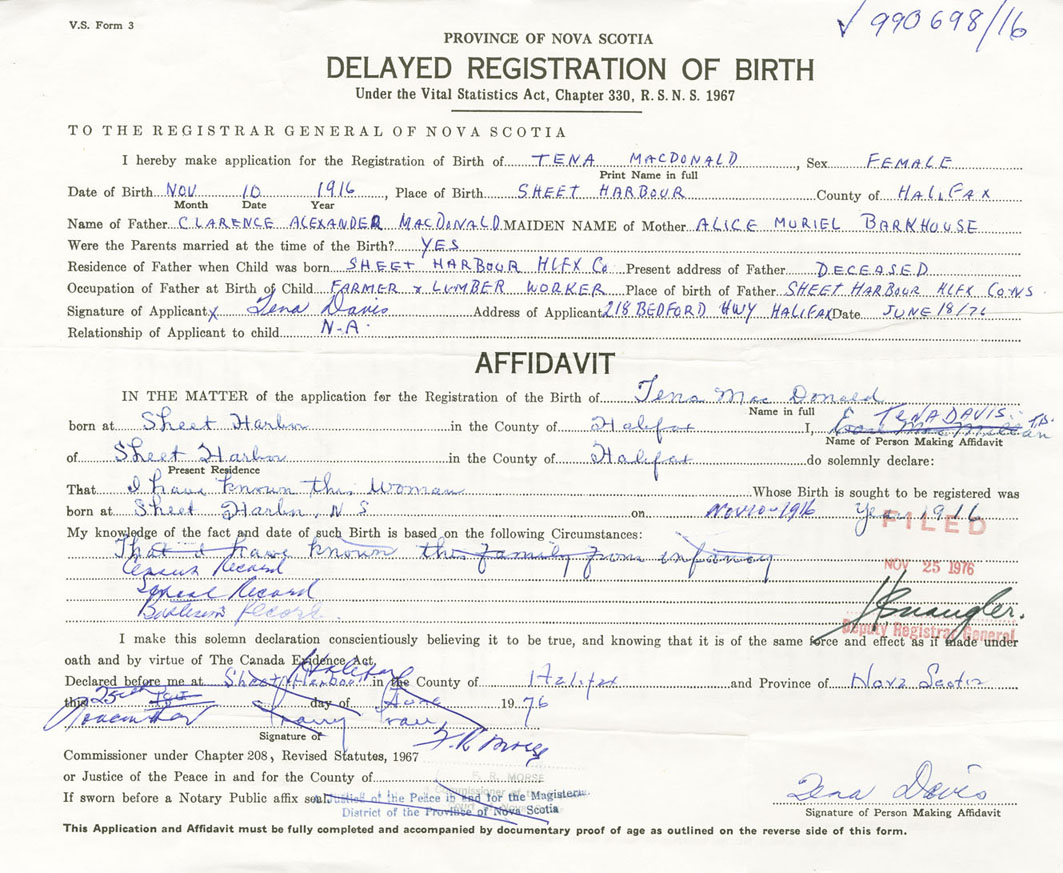 V.S. Form 3
✓ 990698/16
PROVINCE OF NOVA SCOTIA
DELAYED REGISTRATION OF BIRTH
Under the Vital Statistics Act, Chapter 330, R.S.N.S. 1967
TO THE REGISTRAR GENERAL OF NOVA SCOTIA
I hereby make application for the Registration of Birth of TENA MACDONALD, Sex FEMALE
Print Name in full
Date of Birth NOV 10 1916, Place of Birth SHEET HARBOUR County of HALIFAX
Month Date Year
Name of Father CLARENCE ALEXANDER MACDONALD MAIDEN NAME of Mother ALICE MURIEL BARKHOUSE
Were the Parents married at the time of the Birth? YES
Residence of Father when Child was born SHEET HARBOUR HLFX Co Present address of Father DECEASED
Occupation of Father at Birth of Child FARMER & LUMBER WORKER Place of birth of Father SHEET HARBOUR HLFX CO.NS
Signature of Applicant X Tena Davis Address of Applicant 218 BEDFORD HWY HALIFAX Date JUNE 18/76
Relationship of Applicant to child N-A.
AFFIDAVIT
IN THE MATTER of the application for the Registration of the Birth of Tena Mac Donald
Name in full
born at Sheet Harbr in the County of Halifax I, TENA DAVIS T.D.
Name of Person Making Affidavit
of Sheet Harbr in the County of Halifax do solemnly declare:
Present Residence
That I have known this Woman Whose Birth is sought to be registered was
born at Sheet Harbr, N S on Nov 10-1916 Year 1916
My knowledge of the fact and date of such Birth is based on the following Circumstances:
That I have known the family from infancy
Census Record
Record
Baptism Record
FILED
NOV 25 1976
Deputy Registrar General
I make this solemn declaration conscientiously believing it to be true, and knowing that it is of the same force and effect as if made under
oath and by virtue of The Canada Evidence Act,
Declared before me at Sheet Harbour Halifax in the County of Halifax and Province of Nova Scotia
this 25th day of June 1976
November
Signature of F R Morse
Commissioner under Chapter 208, Revised Statutes, 1967
F. R. MORSE
or Justice of the Peace in and for the County of
If sworn before a Notary Public affix seal
A Justice of the Peace in and for the Magisterial
District of the Province of Nova Scotia
Tena Davis
Signature of Person Making Affidavit
This Application and Affidavit must be fully completed and accompanied by documentary proof of age as outlined on the reverse side of this form.